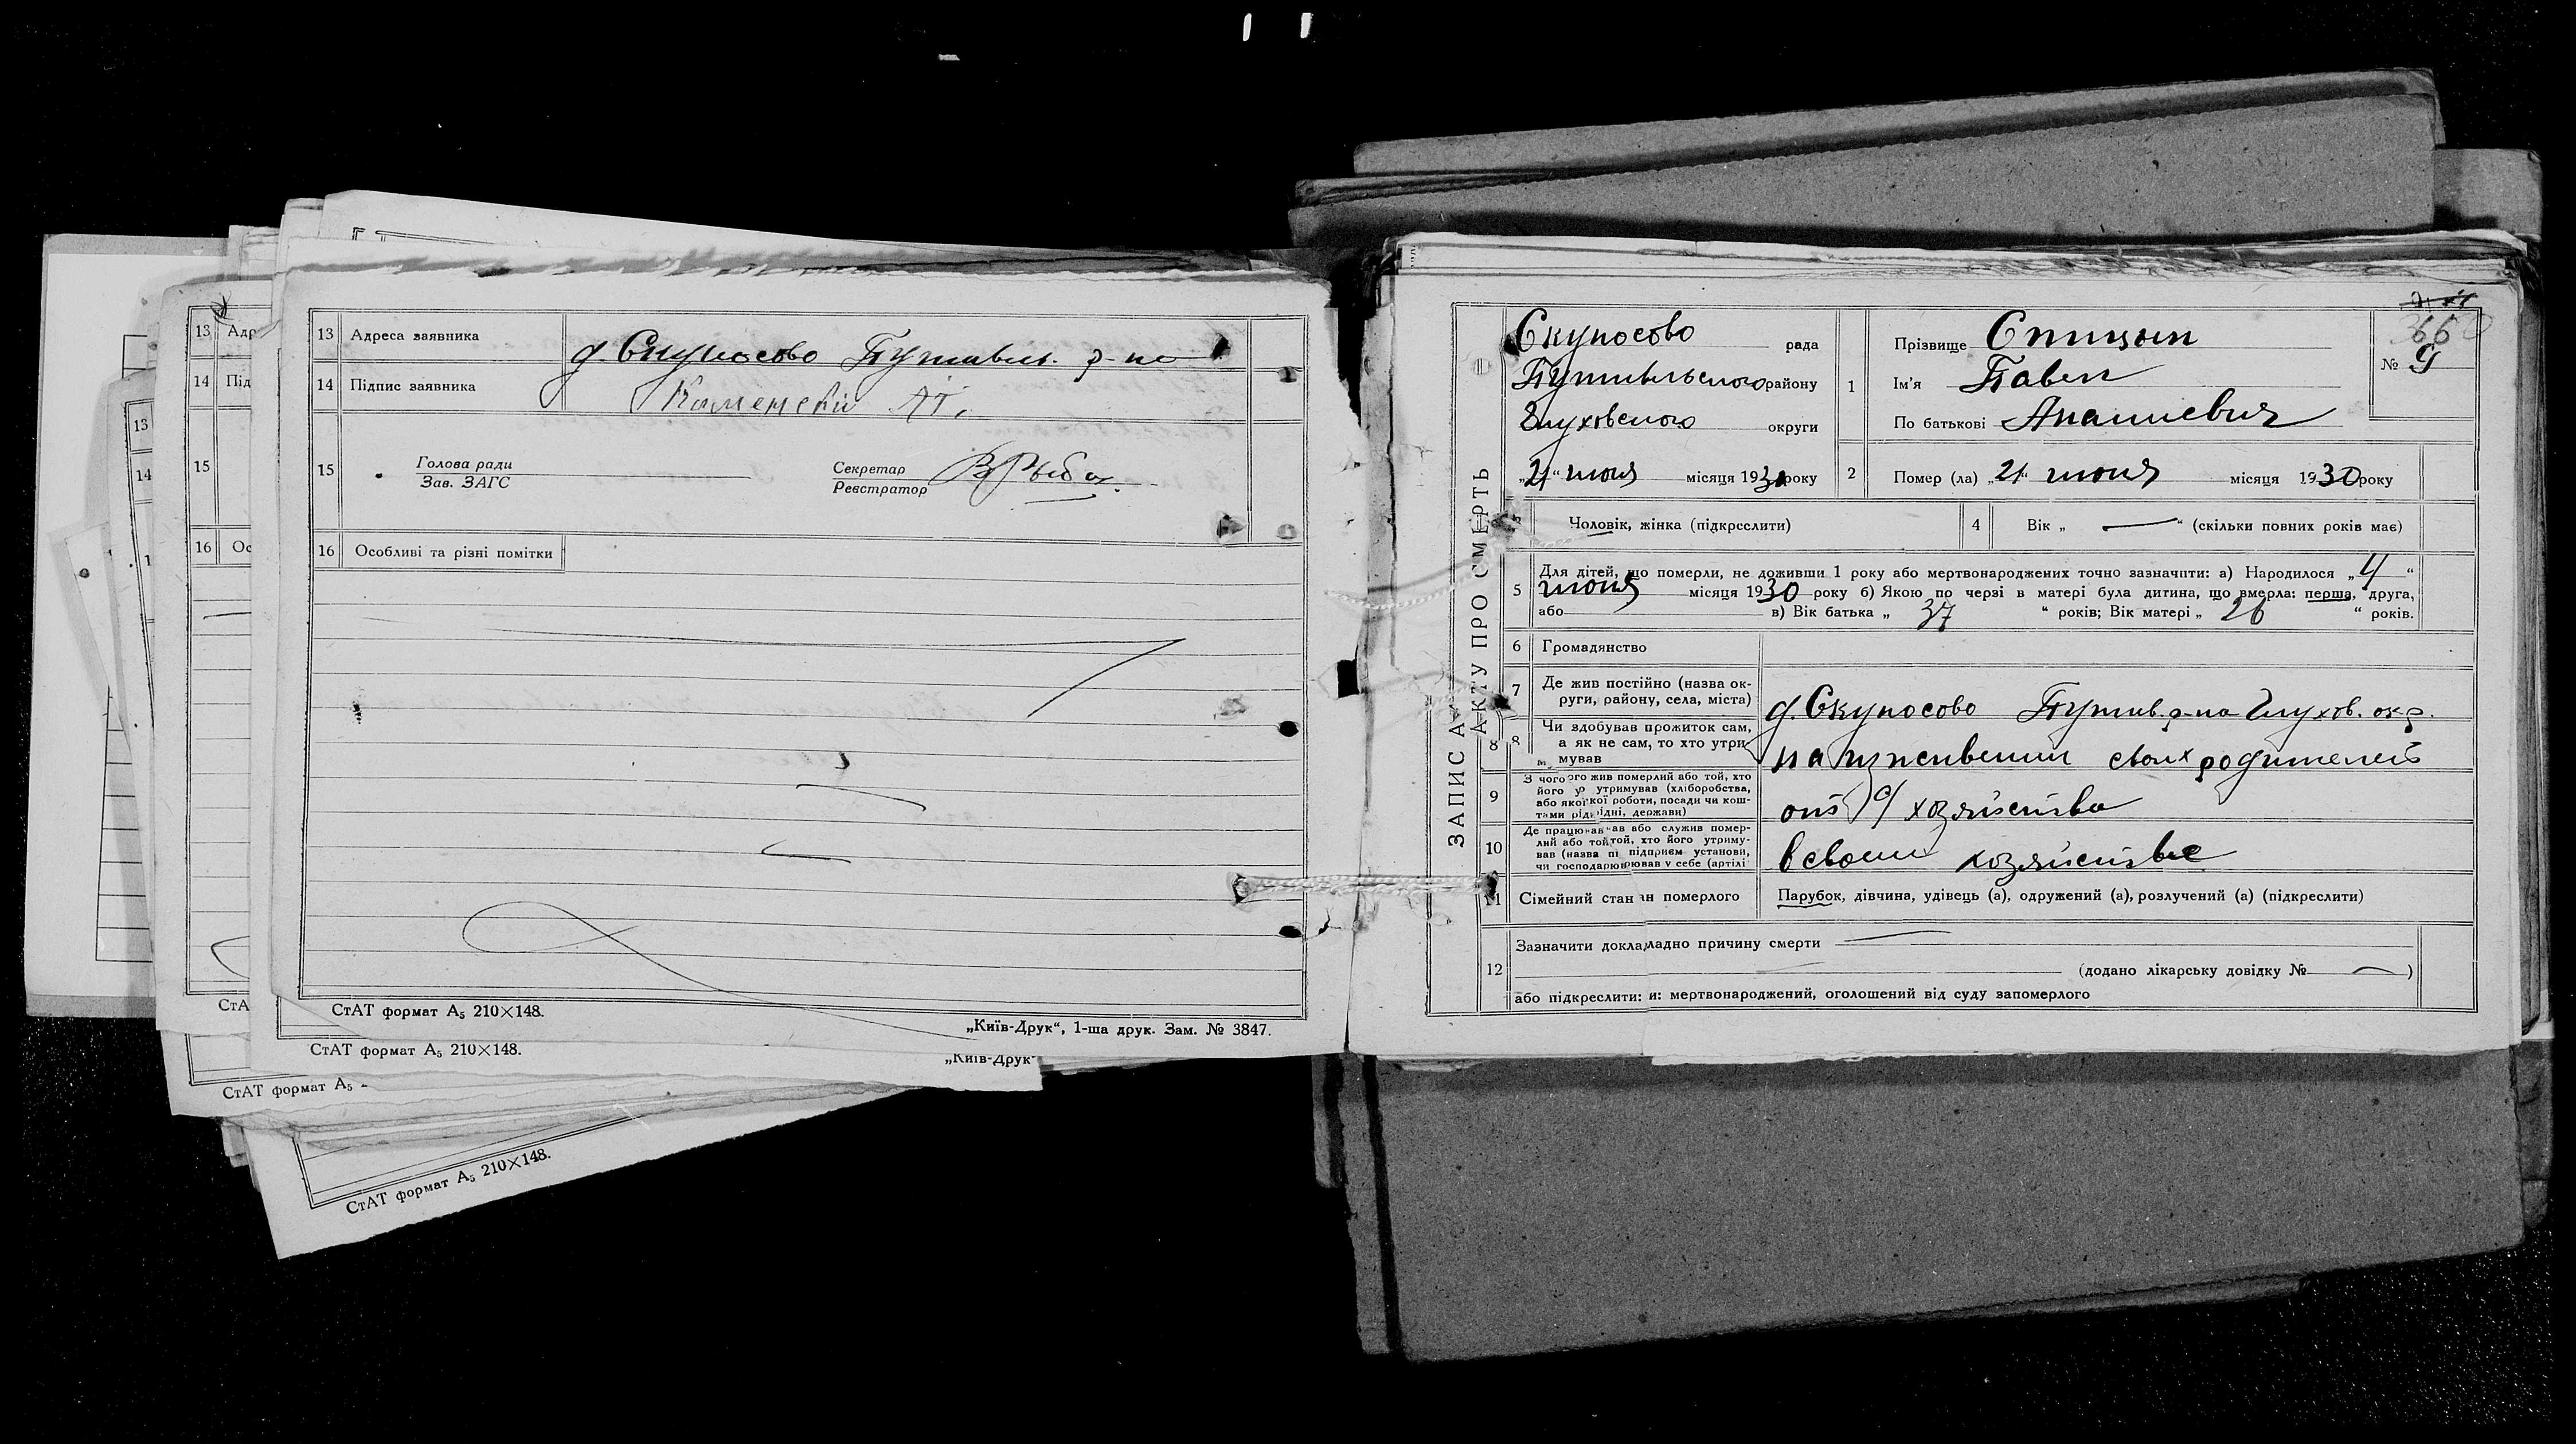 13 Адр
14 Під
15
16 Ос
13
14
13 Адреса заявника д. Скуносово Путивль. р-на
14 Підпис заявника Каменский
15 Голова ради
Зав. ЗАГС
Секретар
Реєстратор
16 Особливі та різні помітки
СтАТ формат А5 210×148.
„Київ-Друк“, 1-ша друк. Зам. № 3847.
СтАТ формат А5 210×148.
„Київ-Друк“
СтАТ формат А5
СтАТ формат А5 210×148.
ЗАПИС АКТУ ПРО СМЕРТЬ
Скуносово рада
Путивльского району
Глуховского округи
„21“ июня місяця 1930 року
1 Прізвище Спицын
Ім'я Павел
По батькові Ананиевич
366
№ 9
2 Помер (ла) „21“ июня місяця 1930 року
3 Чоловік, жінка (підкреслити)
4 Вік „ — “ (скільки повних років має)
5 Для дітей, що померли, не доживши 1 року або мертвонароджених точно зазначити: а) Народилося „4“
июня місяця 1930 року б) Якою по черзі в матері була дитина, що вмерла: перша, друга,
або в) Вік батька „ 37 “ років; Вік матері „ 26 “ років.
6 Громадянство
7 Де жив постійно (назва ок-
руги, району, села, міста) д. Скуносово Путив. р-на Глухов. окр.
8 Чи здобував прожиток сам,
а як не сам, то хто утри
мував на иждивении своих родителей
9 З чого жив померлий або той, хто
його утримував (хліборобства,
або якої роботи, посади чи кош-
тами рідні, держави) от с/хозяйства
10 Де працював або служив помер-
лий або той, хто його утриму-
вав (назва підприєм установи,
чи господарював у себе (артілі в своем хозяйстве
11 Сімейний стан померлого Парубок, дівчина, удівець (а), одружений (а), розлучений (а) (підкреслити)
12 Зазначити докладно причину смерти —
(додано лікарську довідку № — )
або підкреслити: мертвонароджений, оголошений від суду запомерлого